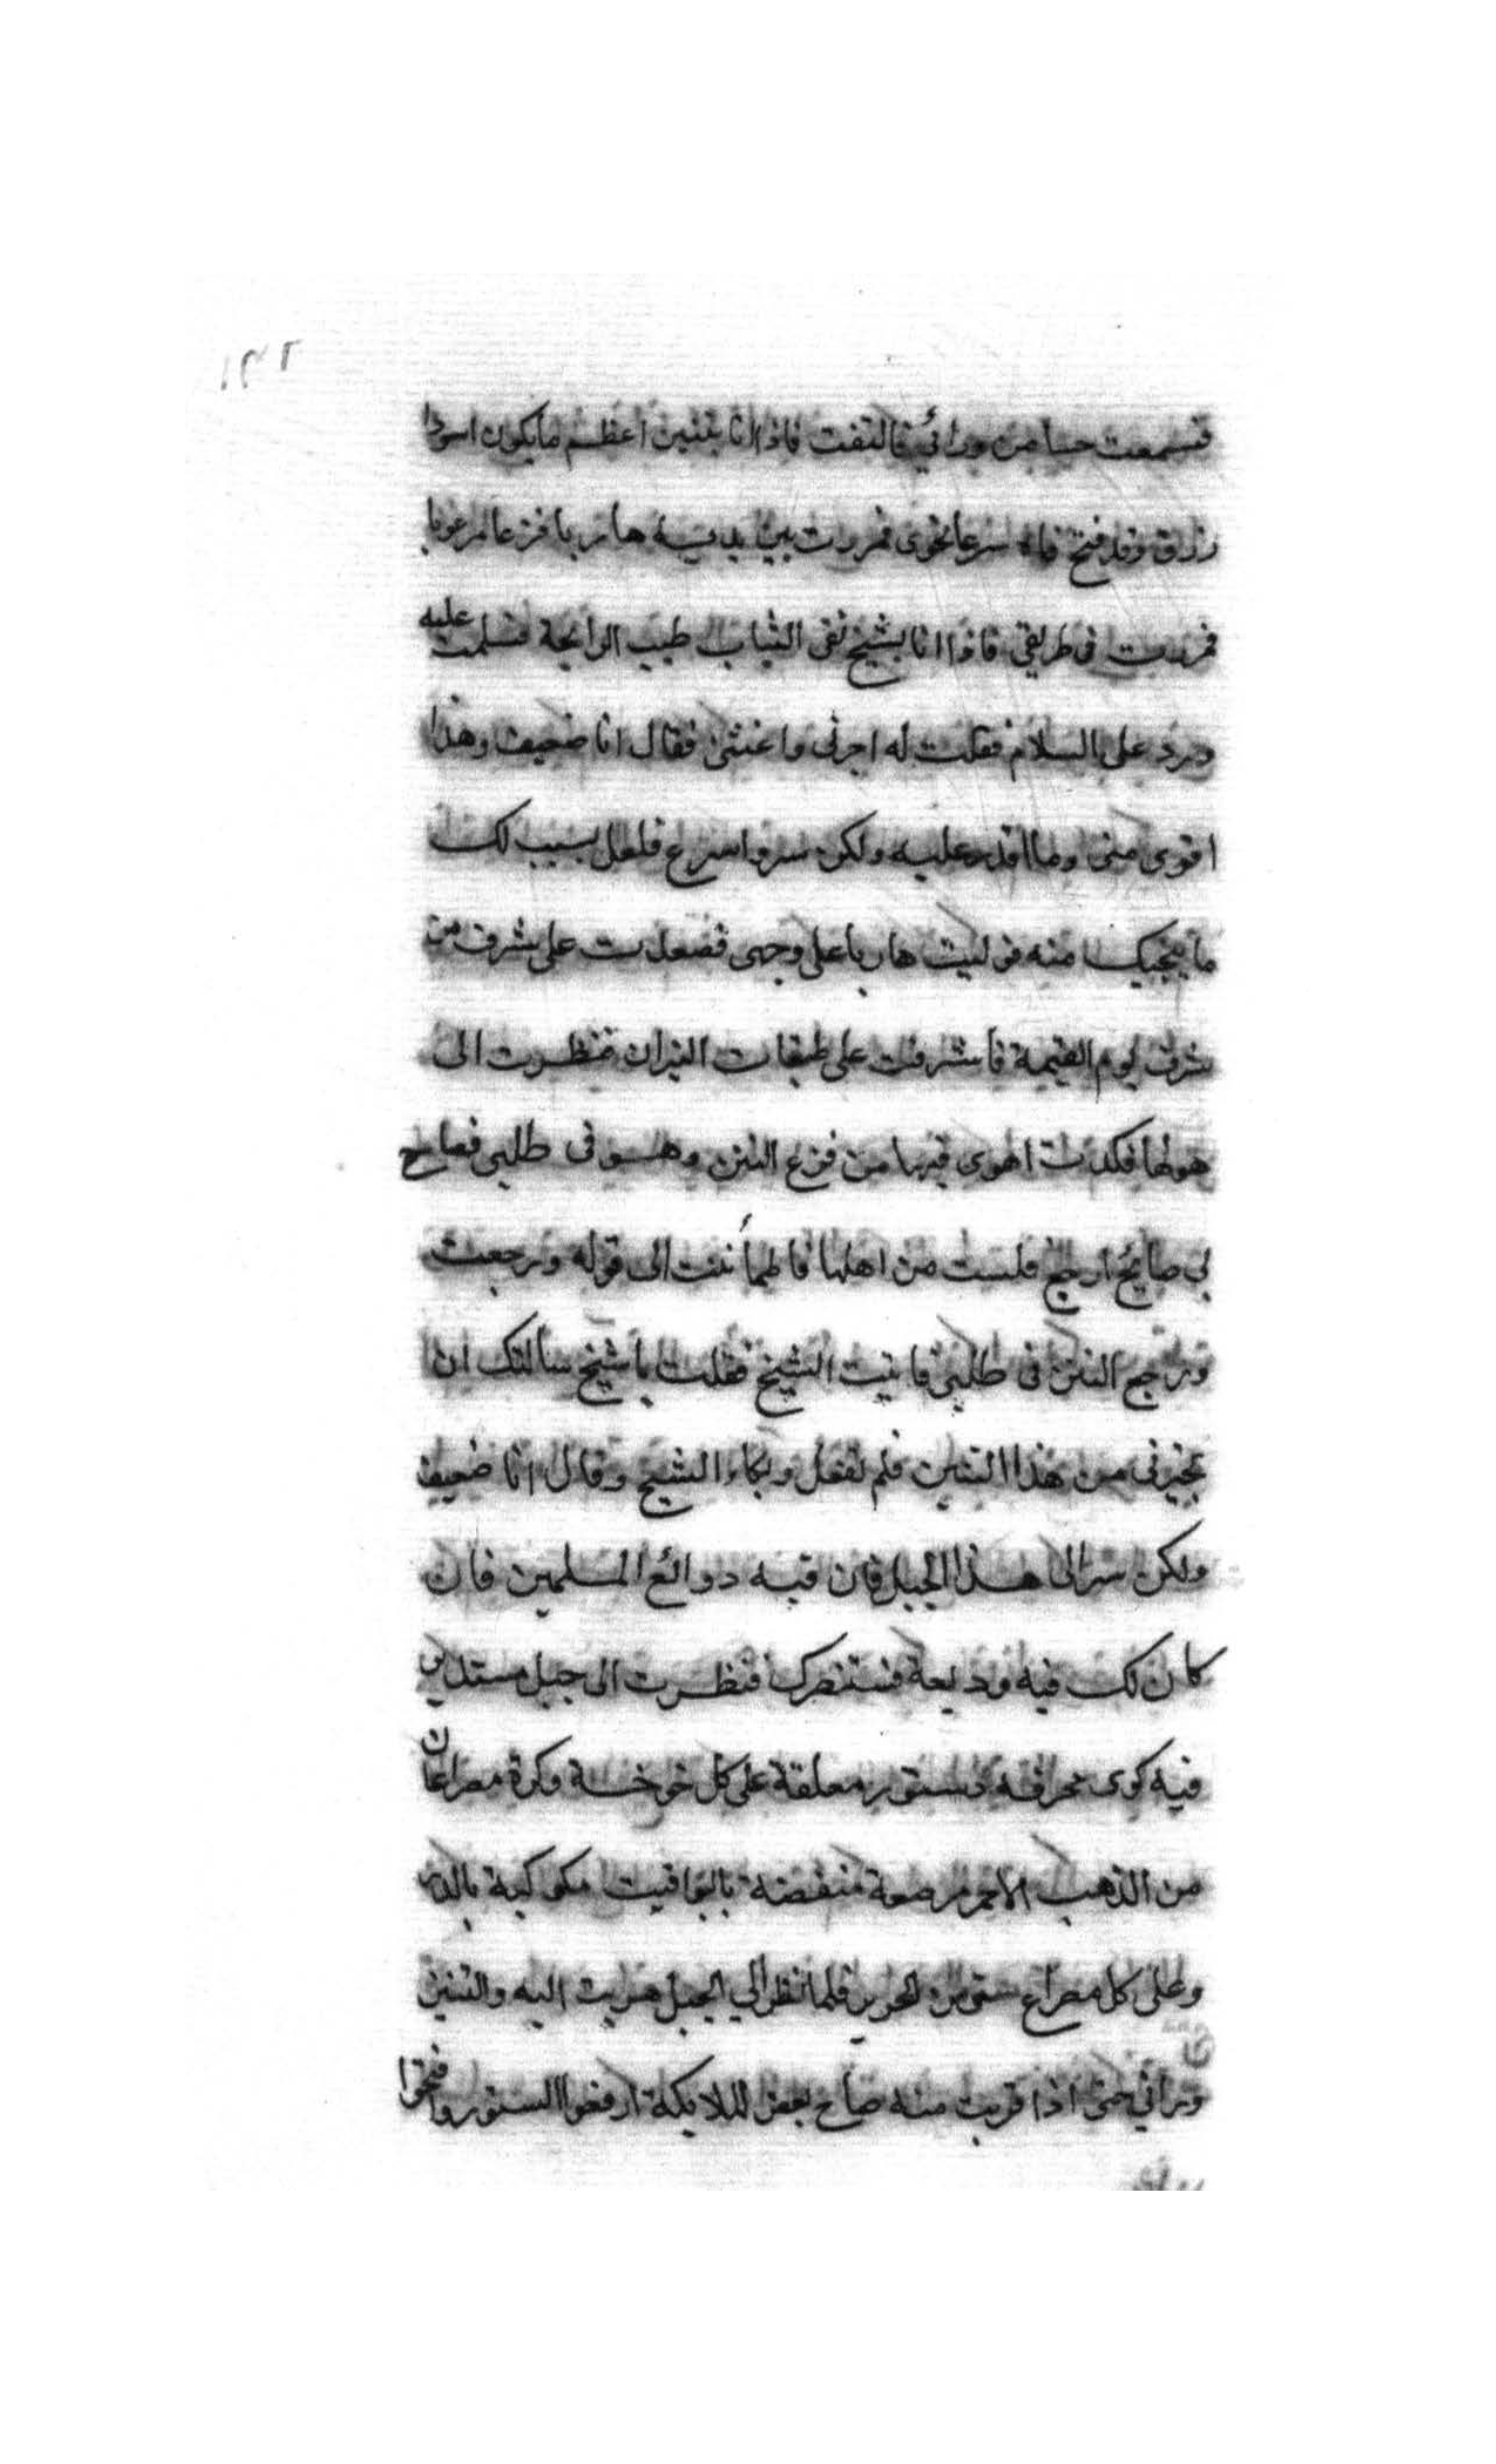 فسمعت حسا من ورائي فالتفت فاذا انا بتنين اعظم ما يكون اسودا
زرق وقد فتح فاه سرعا نحوى فمررت بين يديه هاربا فزعا مرعوبا
فمررت فى طريقى فاذا انا بشيخ نقى الثياب طيب الرايحة فسلمت عليه
ورد على السلام فقلت له اجرنى واغثنى فقال انا ضعيف وهذا
اقوى منى وما اقدر عليه ولكن سر واسرع فلعل بسبب لك
ما ينجيك منه فوليت هاربا على وجهى فصعدت على شرف من
شرف يوم القيمة فأشرفت على طبقات النيران فنظرت الى
هولها فكدت اهوى فيها من فزع التنن وهو فى طلبى فصاح
بى صايح ارجع فلست من اهلها فاطمأننت الى قوله ورجعت
ورجع التنن فى طلبى فاتيت الشيخ فقلت يا شيخ سالتك ان
تجيرنى من هذا التنين فلم تفعل وبكاء الشيخ وقال انا ضعيف
ولكن سر الى هذا الجبل فان فيه دوائع المسلمين فان
كان لك فيه وديعة فستنصرك فنظرت الى جبل مستدير
فيه كوى محرقه وستور معلقة على كل خوخة وكرة مصراعان
من الذهب الاحمر مرصعة منفضة باليواقيت مكوكبة بالدر
وعلى كل مصراع ستر من الحرير فلما نظر الي الجبل هربت اليه والتنين
وراني حتى اذا قربت منه صاح بعض الملايكة ارفعوا الستور وافتحوا